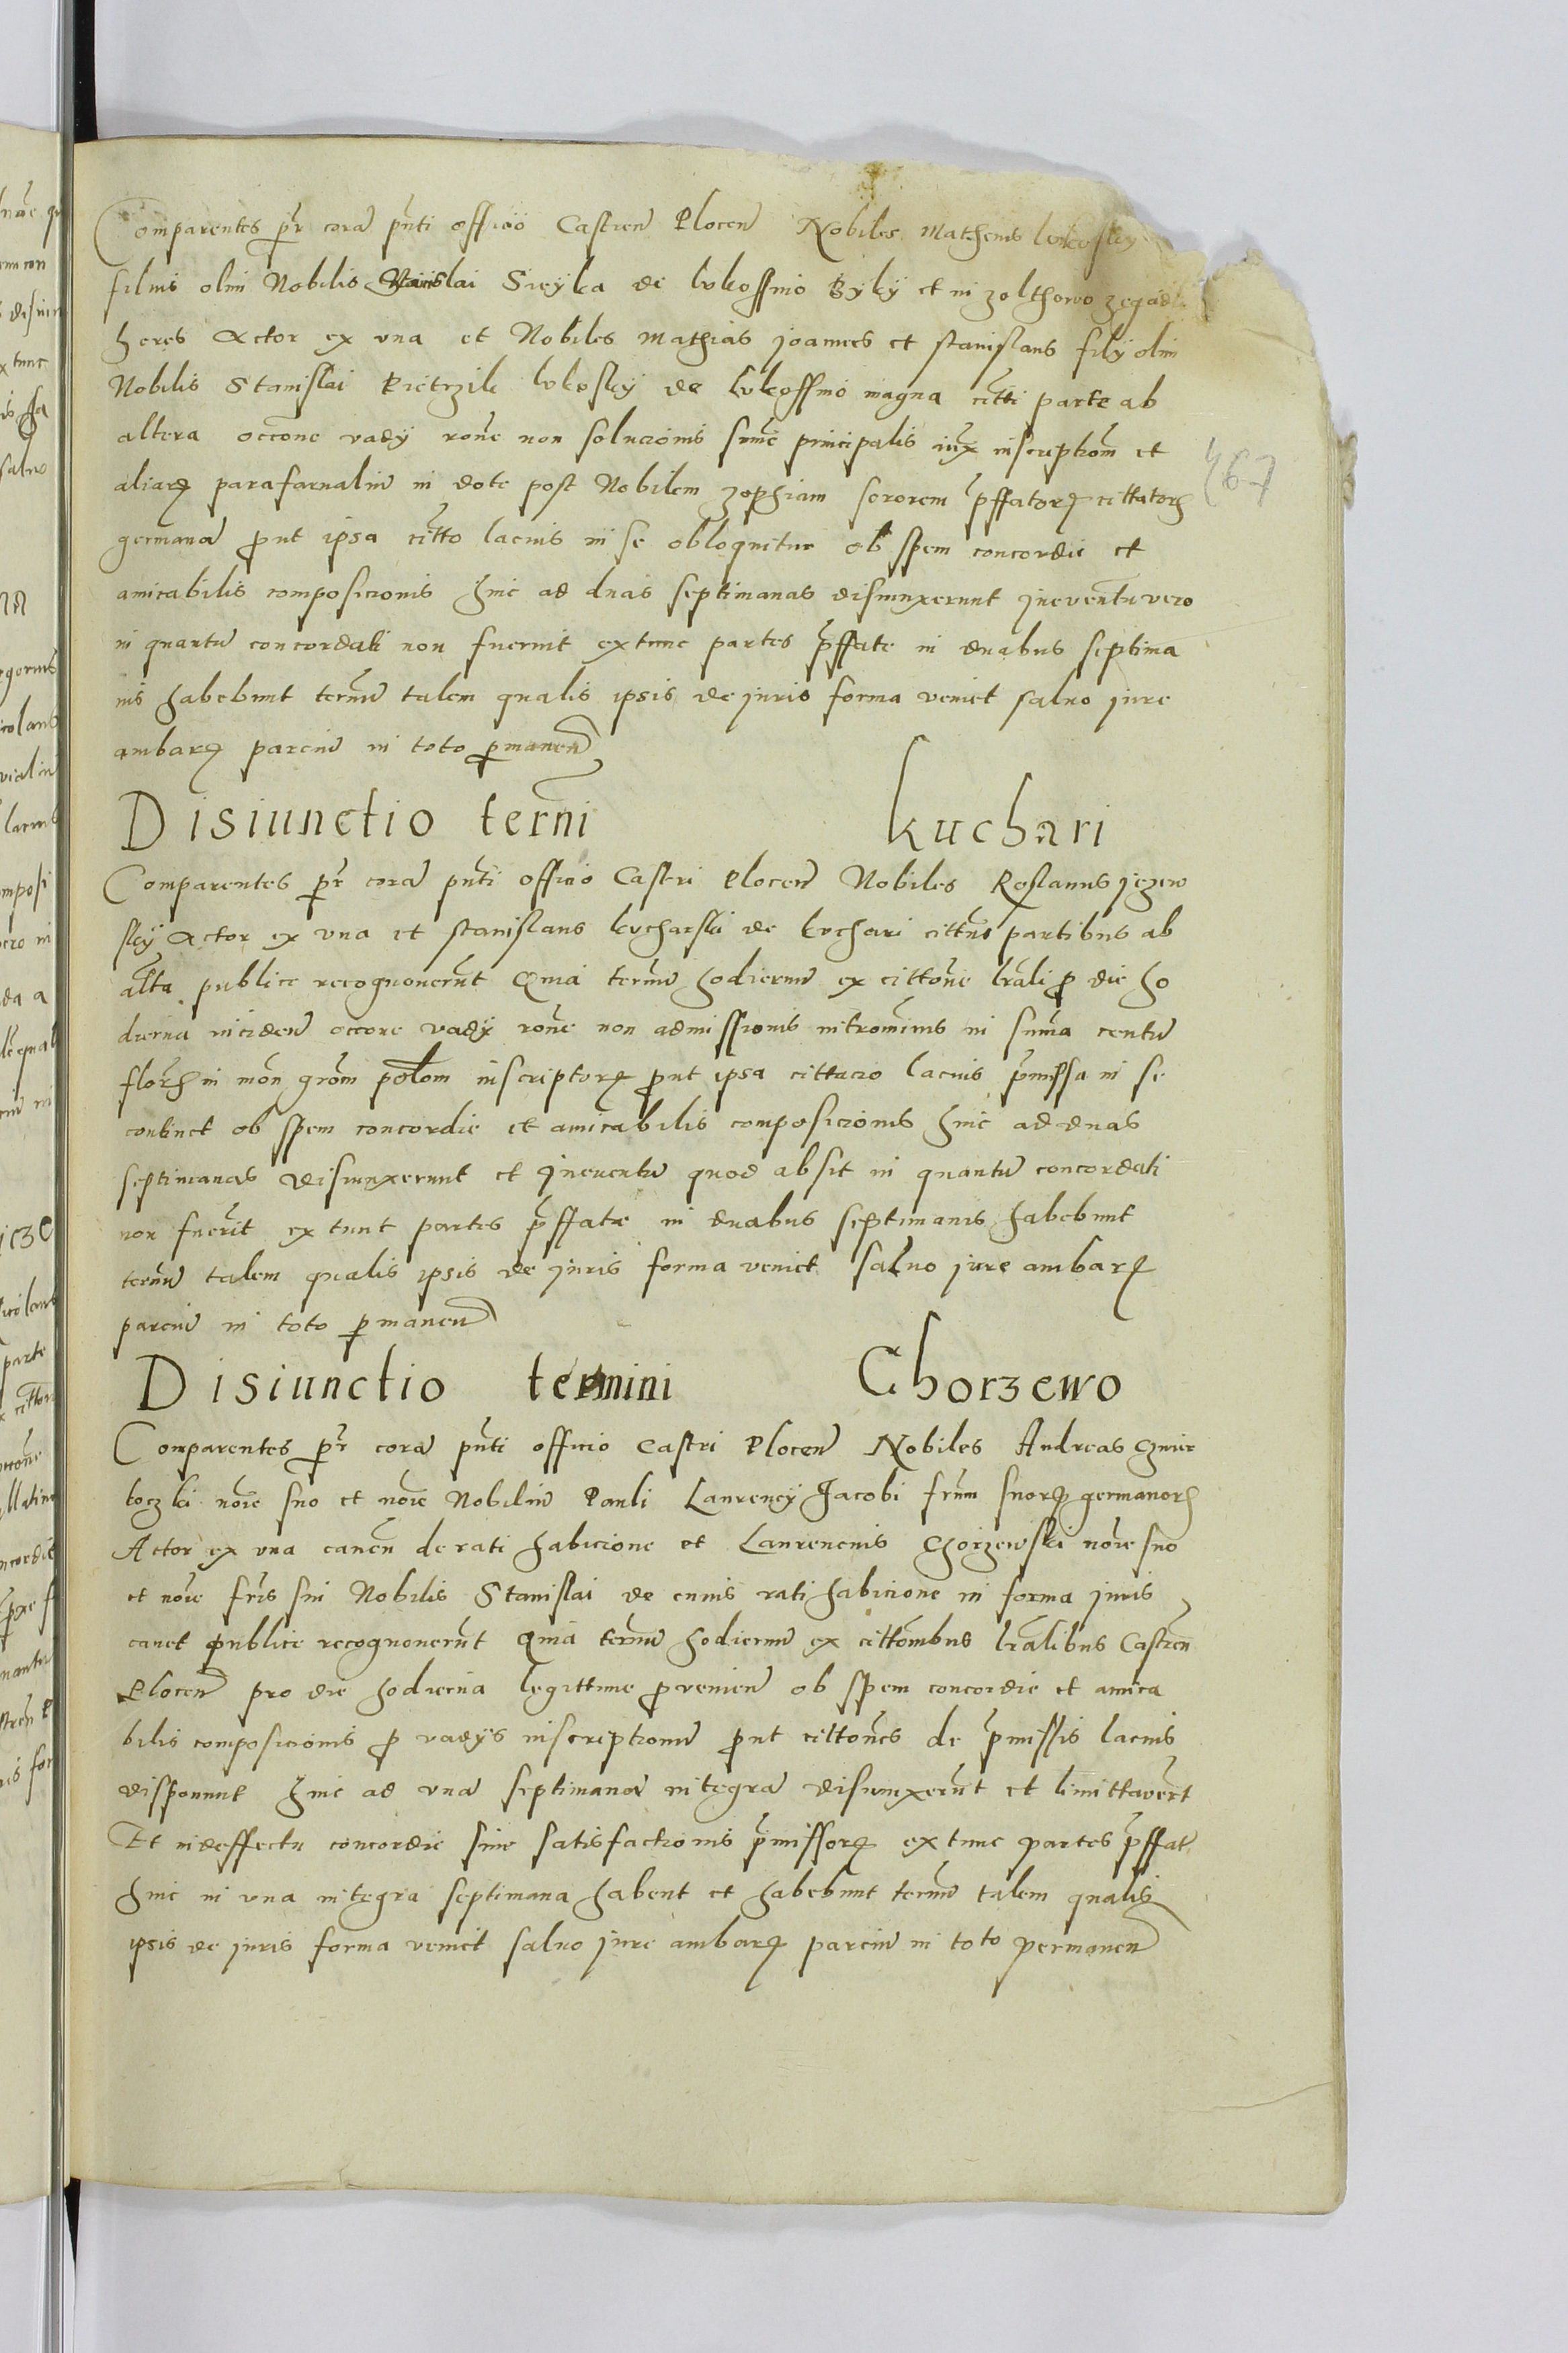 Comparentes pr cora pnti officio Castren Plocen Nobiles Matheus
filius olim Nobilis Stanislai Sieyka de lukossino Byky et in zolthowo
heres Actor ex una et Nobiles Mathias joannes et stanislaus filij olim
Nobilis Stanislai Pietrzik lukosky de lukossino magna citti parte ab
altera occone vadij rone non solucionis sume principalis iux inscriptom et
aliarq parafarnaliu in dote post Nobilem zophiam sororem pffatorq cittator
germana put ipsa citto lacius in se obloquitur ob spem concordie et
amicabilis composicionis hinc ad duas septimanas disiunxerunt ineventu vero
in quantu concordati non fuerint extunc partes pffate in duabus septima
nis habebunt termu talem qualis ipsis de juris forma veniet salvo jure
ambarq parciu in toto pmanen
Disiunctio termi kuchari
Comparentes pr cora pnti officio Castri Plocen Nobiles Roslanus jezew
sky Actor ex una et stanislaus kucharski de kuchari cittus partibus ab
alta publice recognoverut Quia termu hodiernu ex cittone lrali p die ho
dierna inciden occone vadij rone non admissionis intromimis in suma centu
flor in mon grom polom inscriptorq put ipsa cittacio lacius pmissa in se
continet ob spem concordie et amicabilis composicionis hinc ad duas
septimanas disiunxerunt et ineventu quod absit in quantu concordati
non fuerit ex tunt partes pffate in duabus septimanis habebunt
termu talem qualis ipsis de juris forma veniet salvo jure ambarq
parciu in toto pmanen
Disiunctio termini Chorzewo
Comparentes pr cora pnti officio Castri Plocen Nobiles Andreas
noie suo et noie Nobiliu Pauli Laurencij Jacobi frum suorq germanor
Actor ex una caven de rati habicione et Laurencius Chorzewski noie suo
et noie fris sui Nobilis Stanislai de cuius rati habicione in forma juris
cavet publice recognoverut quia termu hodiernu ex cittombus lralibus Castren
Plocen pro die hodierna legittime pvenien ob spem concordie et amica
bilis composicionis p vadijs inscriptionu put cittones de pmissis lacius
disponunt hinc ad una septimana integra disiunxerut et limittaverut
Et indeffectu concordie sine satisfactionis pmissorq extunc partes pffat
hinc in una integra septimana habent et habebunt termu talem qualis
ipsis de juris forma veniet salvo jure ambarq parciu in toto permanen
467